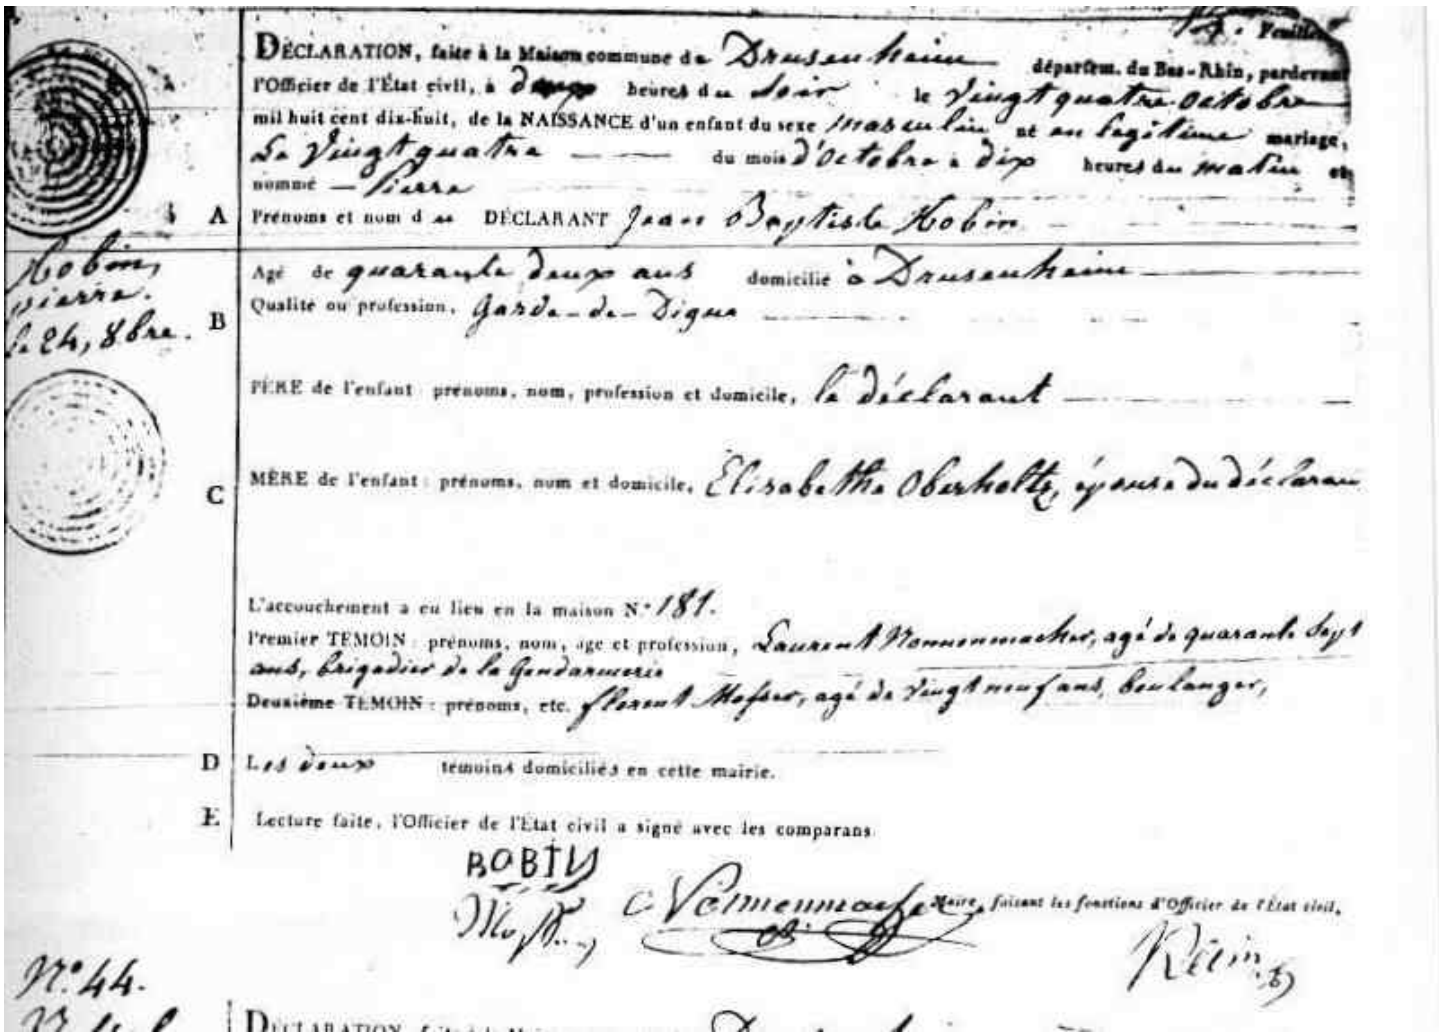 Feuillet
DÉCLARATION, faite à la Maison commune de Drusenheim départem. du Bas-Rhin, pardevant
l'Officier de l'État civil, à deux heures du Soir le Vingt quatre octobre
mil huit cent dix-huit, de la NAISSANCE d'un enfant du sexe masculin né en legitime mariage,
Le Vingt quatre du mois d'Octobre à dix heures du matin et
nommé — Pierre
A Prénoms et nom du DÉCLARANT Jean Baptiste Hobin
Hobin,
pierre.
le 24, 8bre.
Agé de quarante deux ans domicilié à Drusenheim
B Qualité ou profession, Garde-de-Digue
PÈRE de l'enfant : prénoms, nom, profession et domicile, le déclarant
C MÈRE de l'enfant : prénoms, nom et domicile, Elisabethe Oberholtz, épouse du déclaran
L'accouchement a eu lieu en la maison N.° 181.
Premier TÉMOIN : prénoms, nom, age et profession, Laurent Nonnenmacher, agé de quarante Sept
ans, brigadier de la Gendarmerie
Deuxième TÉMOIN : prénoms, etc. florent Mosser, agé de Vingt neuf ans, boulanger,
D Les deux témoins domiciliés en cette mairie.
E Lecture faite, l'Officier de l'État civil a signé avec les comparans
Maire, faisant les fonctions d'Officier de l'État civil,
N.° 44.
DÉCLARATION, faite à la Maison